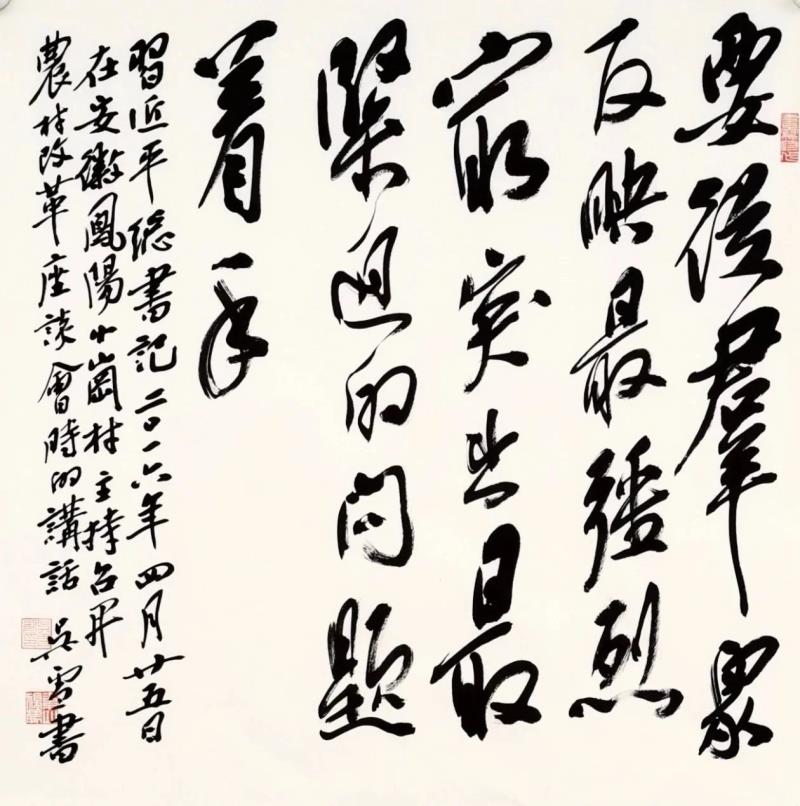 要從羣眾
反映最彊烈
最突出最
緊迫的問題
着手
習近平總書記二〇一六年四月廿五日
在安徽鳳陽小崗村主持召開
農村改革座談會時的講話 吳雪書